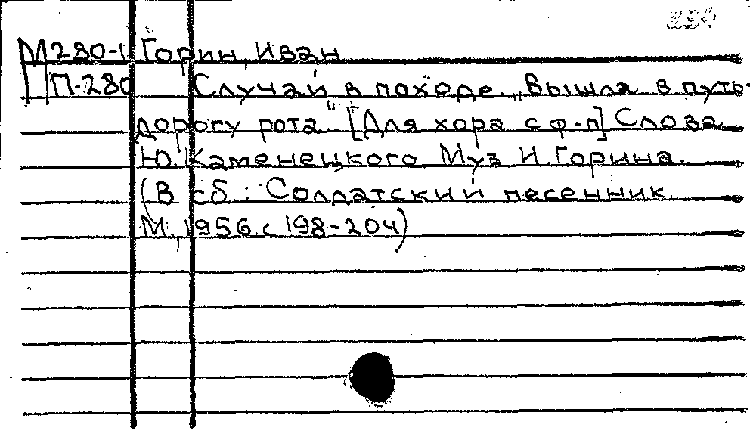 М280-1 Горин, Иван
П-280 Случай в походе. „Вышла в путь-
дорогу рота". [Для хора с ф-п] Слова
Ю. Каменецкого Муз И. Горина.
(В сб.: Солдатский песенник
М., 1956. с 198-204)